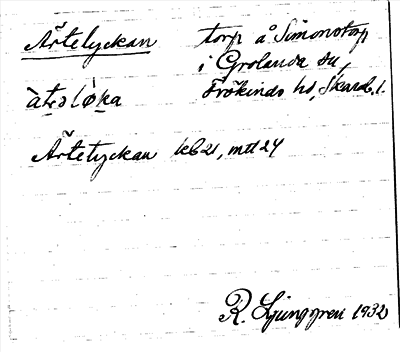 Ärtelyckan torp å Simonstorp
i Grolanda sn,
àt̠ɘlø̀ka Frökinds hd, Skarab. l.
Ärtetyckan kb 21, mtl 24
R. Ljunggren 1932